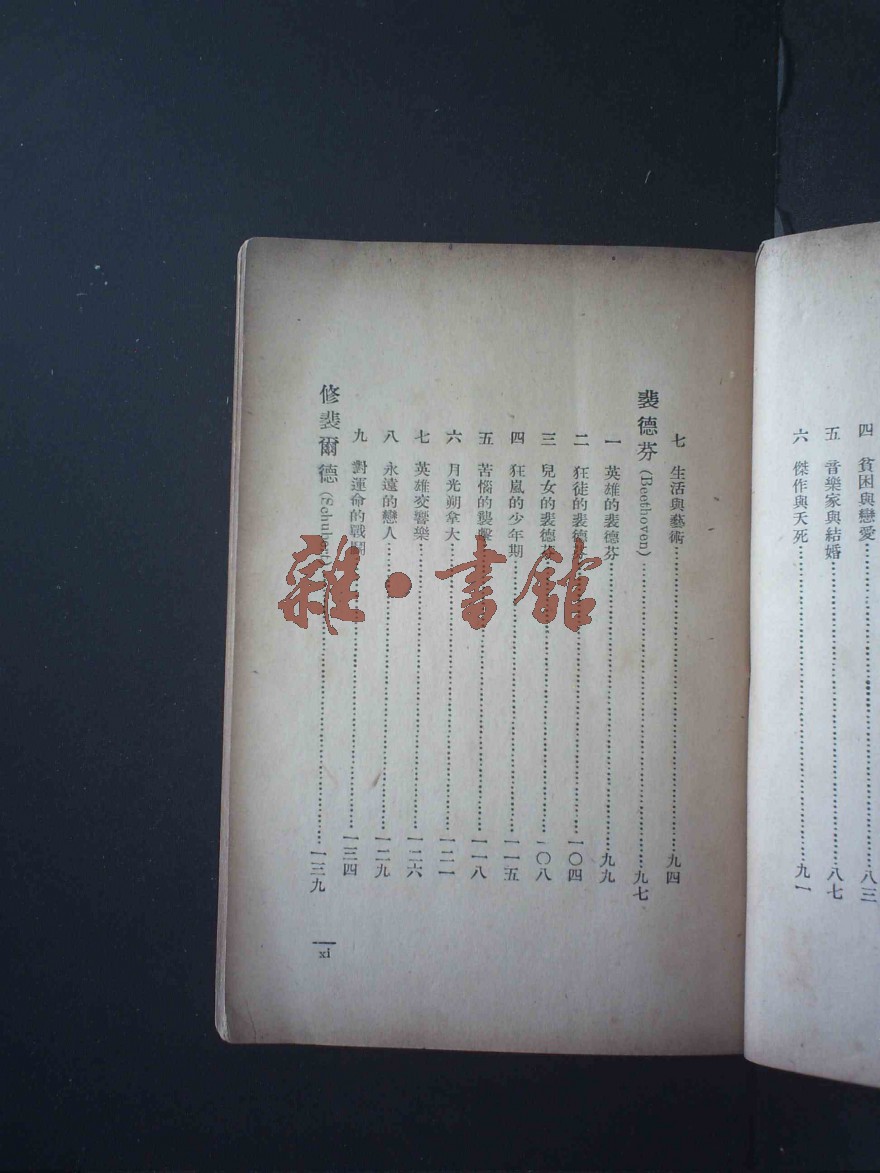 四 貧困與戀愛……八三
五 音樂家與結婚……八七
六 傑作與夭死……九一
七 生活與藝術……九四
裴德芬 (Beethoven)……九七
一 英雄的裴德芬……九九
二 狂徒的裴德芬……一〇四
三 兒女的裴德芬……一〇八
四 狂嵐的少年期……一一五
五 苦惱的襲擊……一一八
六 月光朔拿大……一二一
七 英雄交響樂……一二六
八 永遠的戀人……一二九
九 對運命的戰鬥……一三四
修裴爾德 (Schubert……一三九
xi
雜·書館